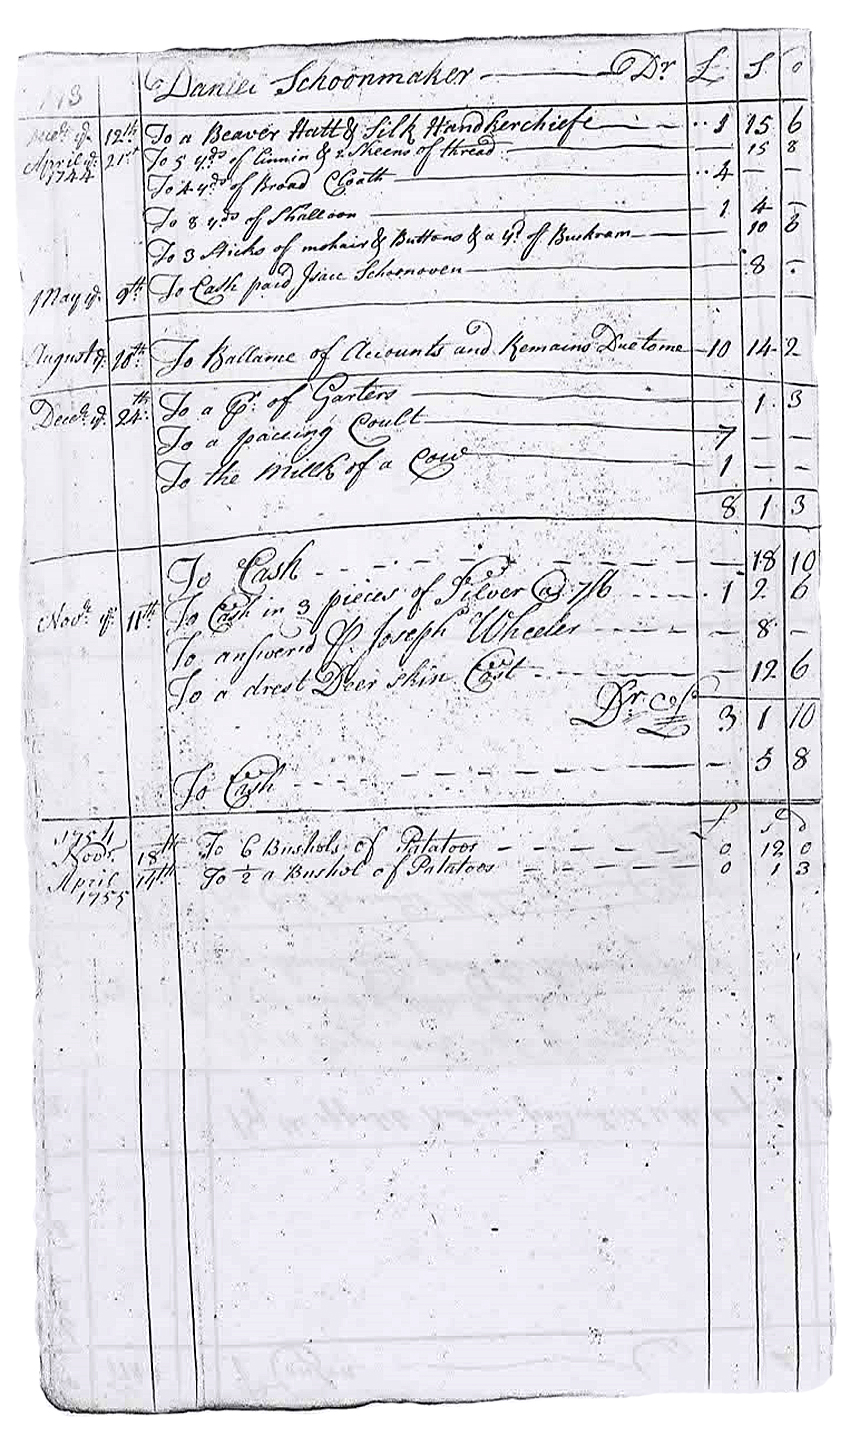 Daniel Schoonmaker Dr £ S D
Decr ye 12th To a Beaver Hatt & Silk Handkerchiefe 1 15 6
April ye 21st To 5 yds of linnin & 2 Skeens of thread 15 8
1744 To 4 yds of Broad Cloath 4 — —
To 8 yds of Shalloon 1 4 —
To 3 Sticks of mohair & Buttons & a yd of Buckram 10 6
May ye 9th To Cash paid Isacc Schoonoven 8 -
August ye 10th To Ballance of Accounts and Remains Due to me 10 14 2
Decr ye 24th To a pr of Garters 1 3
To a paceing Coult 7 — —
To the Millk of a Cow 1 — —
8 1 3
To Cash 18 10
Novr ye 11th To Cash in 3 pieces of Silver @ 7/6 1 2 6
To answered P Joseph Wheeler — 8 —
To a drest Deer skin Cost 12 6
Dr £ 3 1 10
To Cash — 5 8
£ s d
1754
Novr 18th To 6 Bushols of Patatoos 0 12 0
April 14th To ½ a Bushol of Patatoos 0 1 3
1755